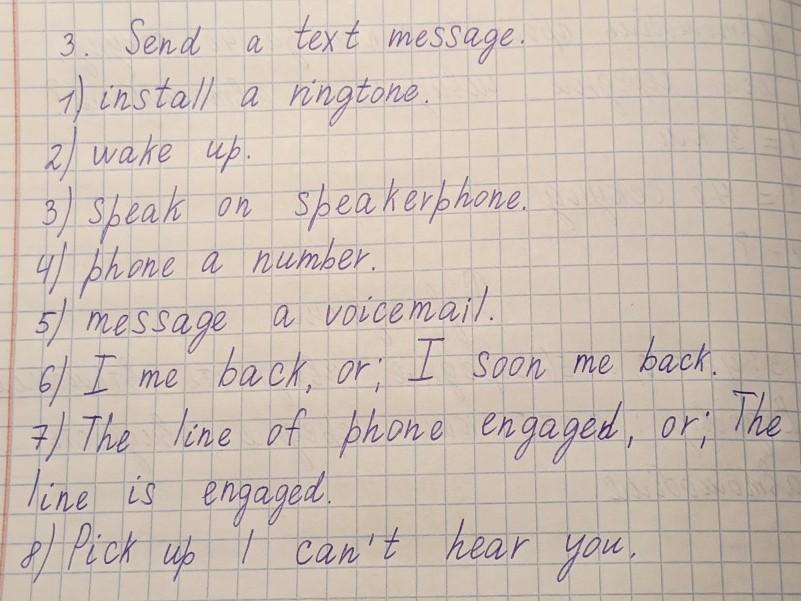 3. Send a text message.
1) install a ringtone.
2) wake up.
3) speak on speakerphone.
4) phone a number.
5) message a voicemail.
6) I me back, or; I soon me back.
7) The line of phone engaged, or; The
line is engaged.
8) Pick up I can't hear you.